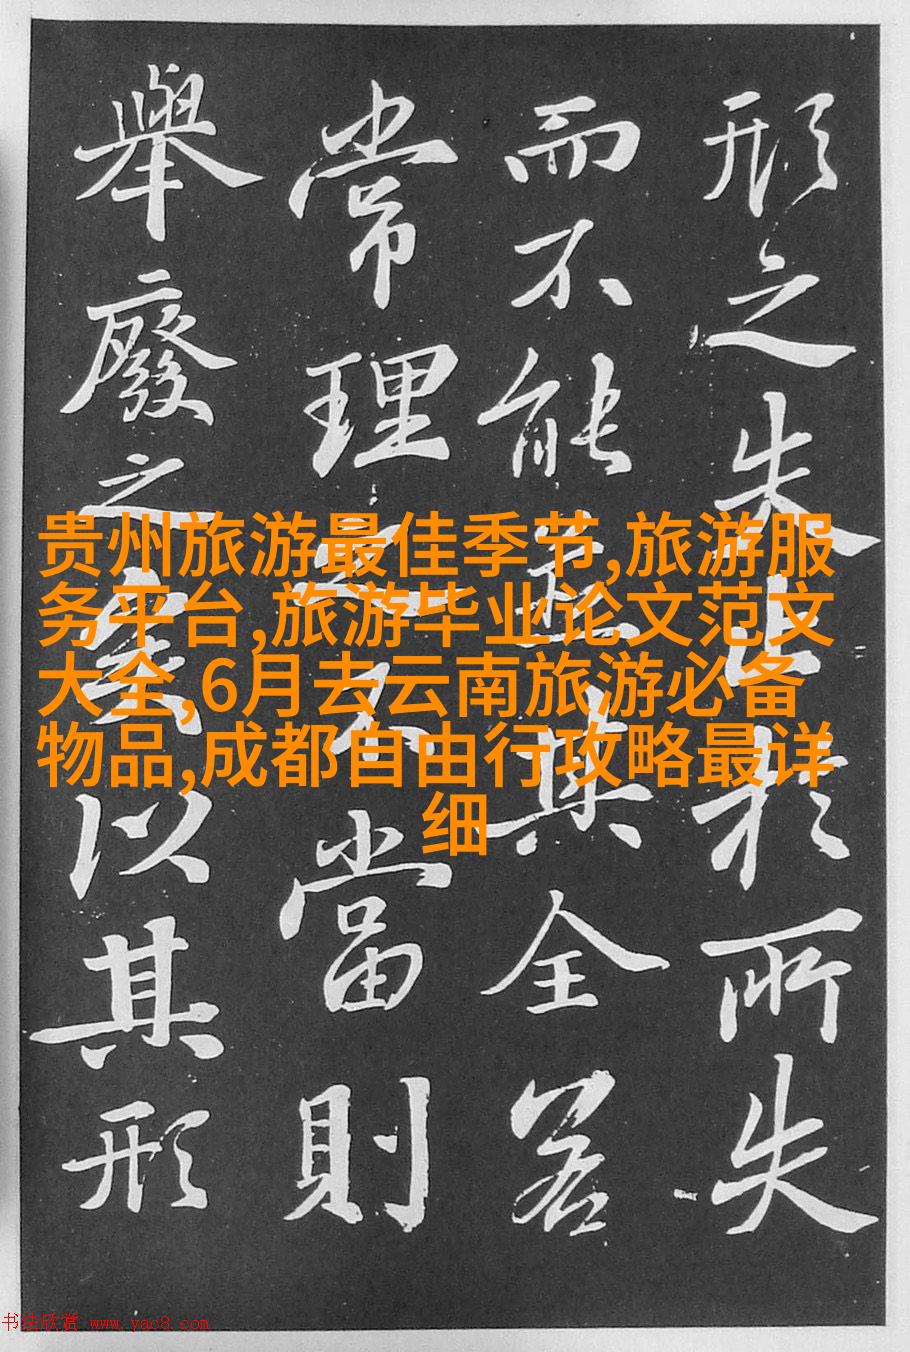 形之失止於所失
而不能其全若
常理之不當則
舉廢之矣以其形
贵州旅游最佳季节,旅游服
务平台,旅游毕业论文范文
大全,6月去云南旅游必备
物品,成都自由行攻略最详
细
书法欣赏 www.yac8.com